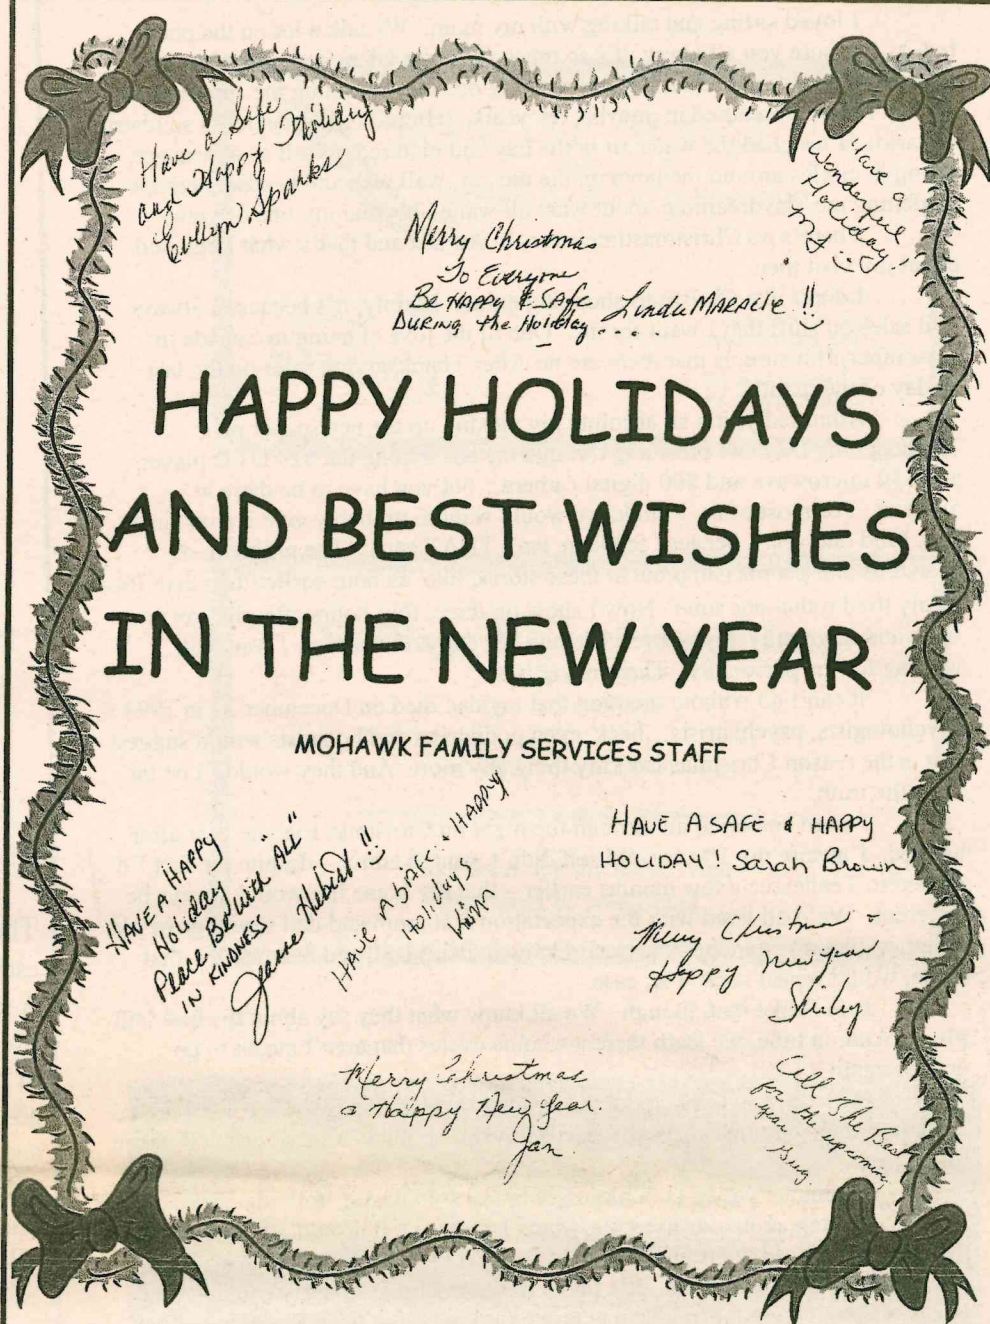 Have a Safe
and Happy Holiday
Sparks
Merry Christmas
To Everyone
Be HAPPY & SAFE
DURING the Holiday... Linda MARACle !!
Have a
Wonderful
Holiday
HAPPY HOLIDAYS
AND BEST WISHES
IN THE NEW YEAR
MOHAWK FAMILY SERVICES STAFF
HAVE A HAPPY
Holiday
Peace Be with ALL"
IN KINDNESS
Jeanne Hebert!!
HAVE A SAFE... HAPPY
Holidays
Kim
HAVE A SAFE & HAPPY
HOLIDAY! Sarah Brown
Merry Christmas -
Happy New year
Shirley
Merry Christmas
a Happy New Year.
Jan
All The Best
For the upcoming
year